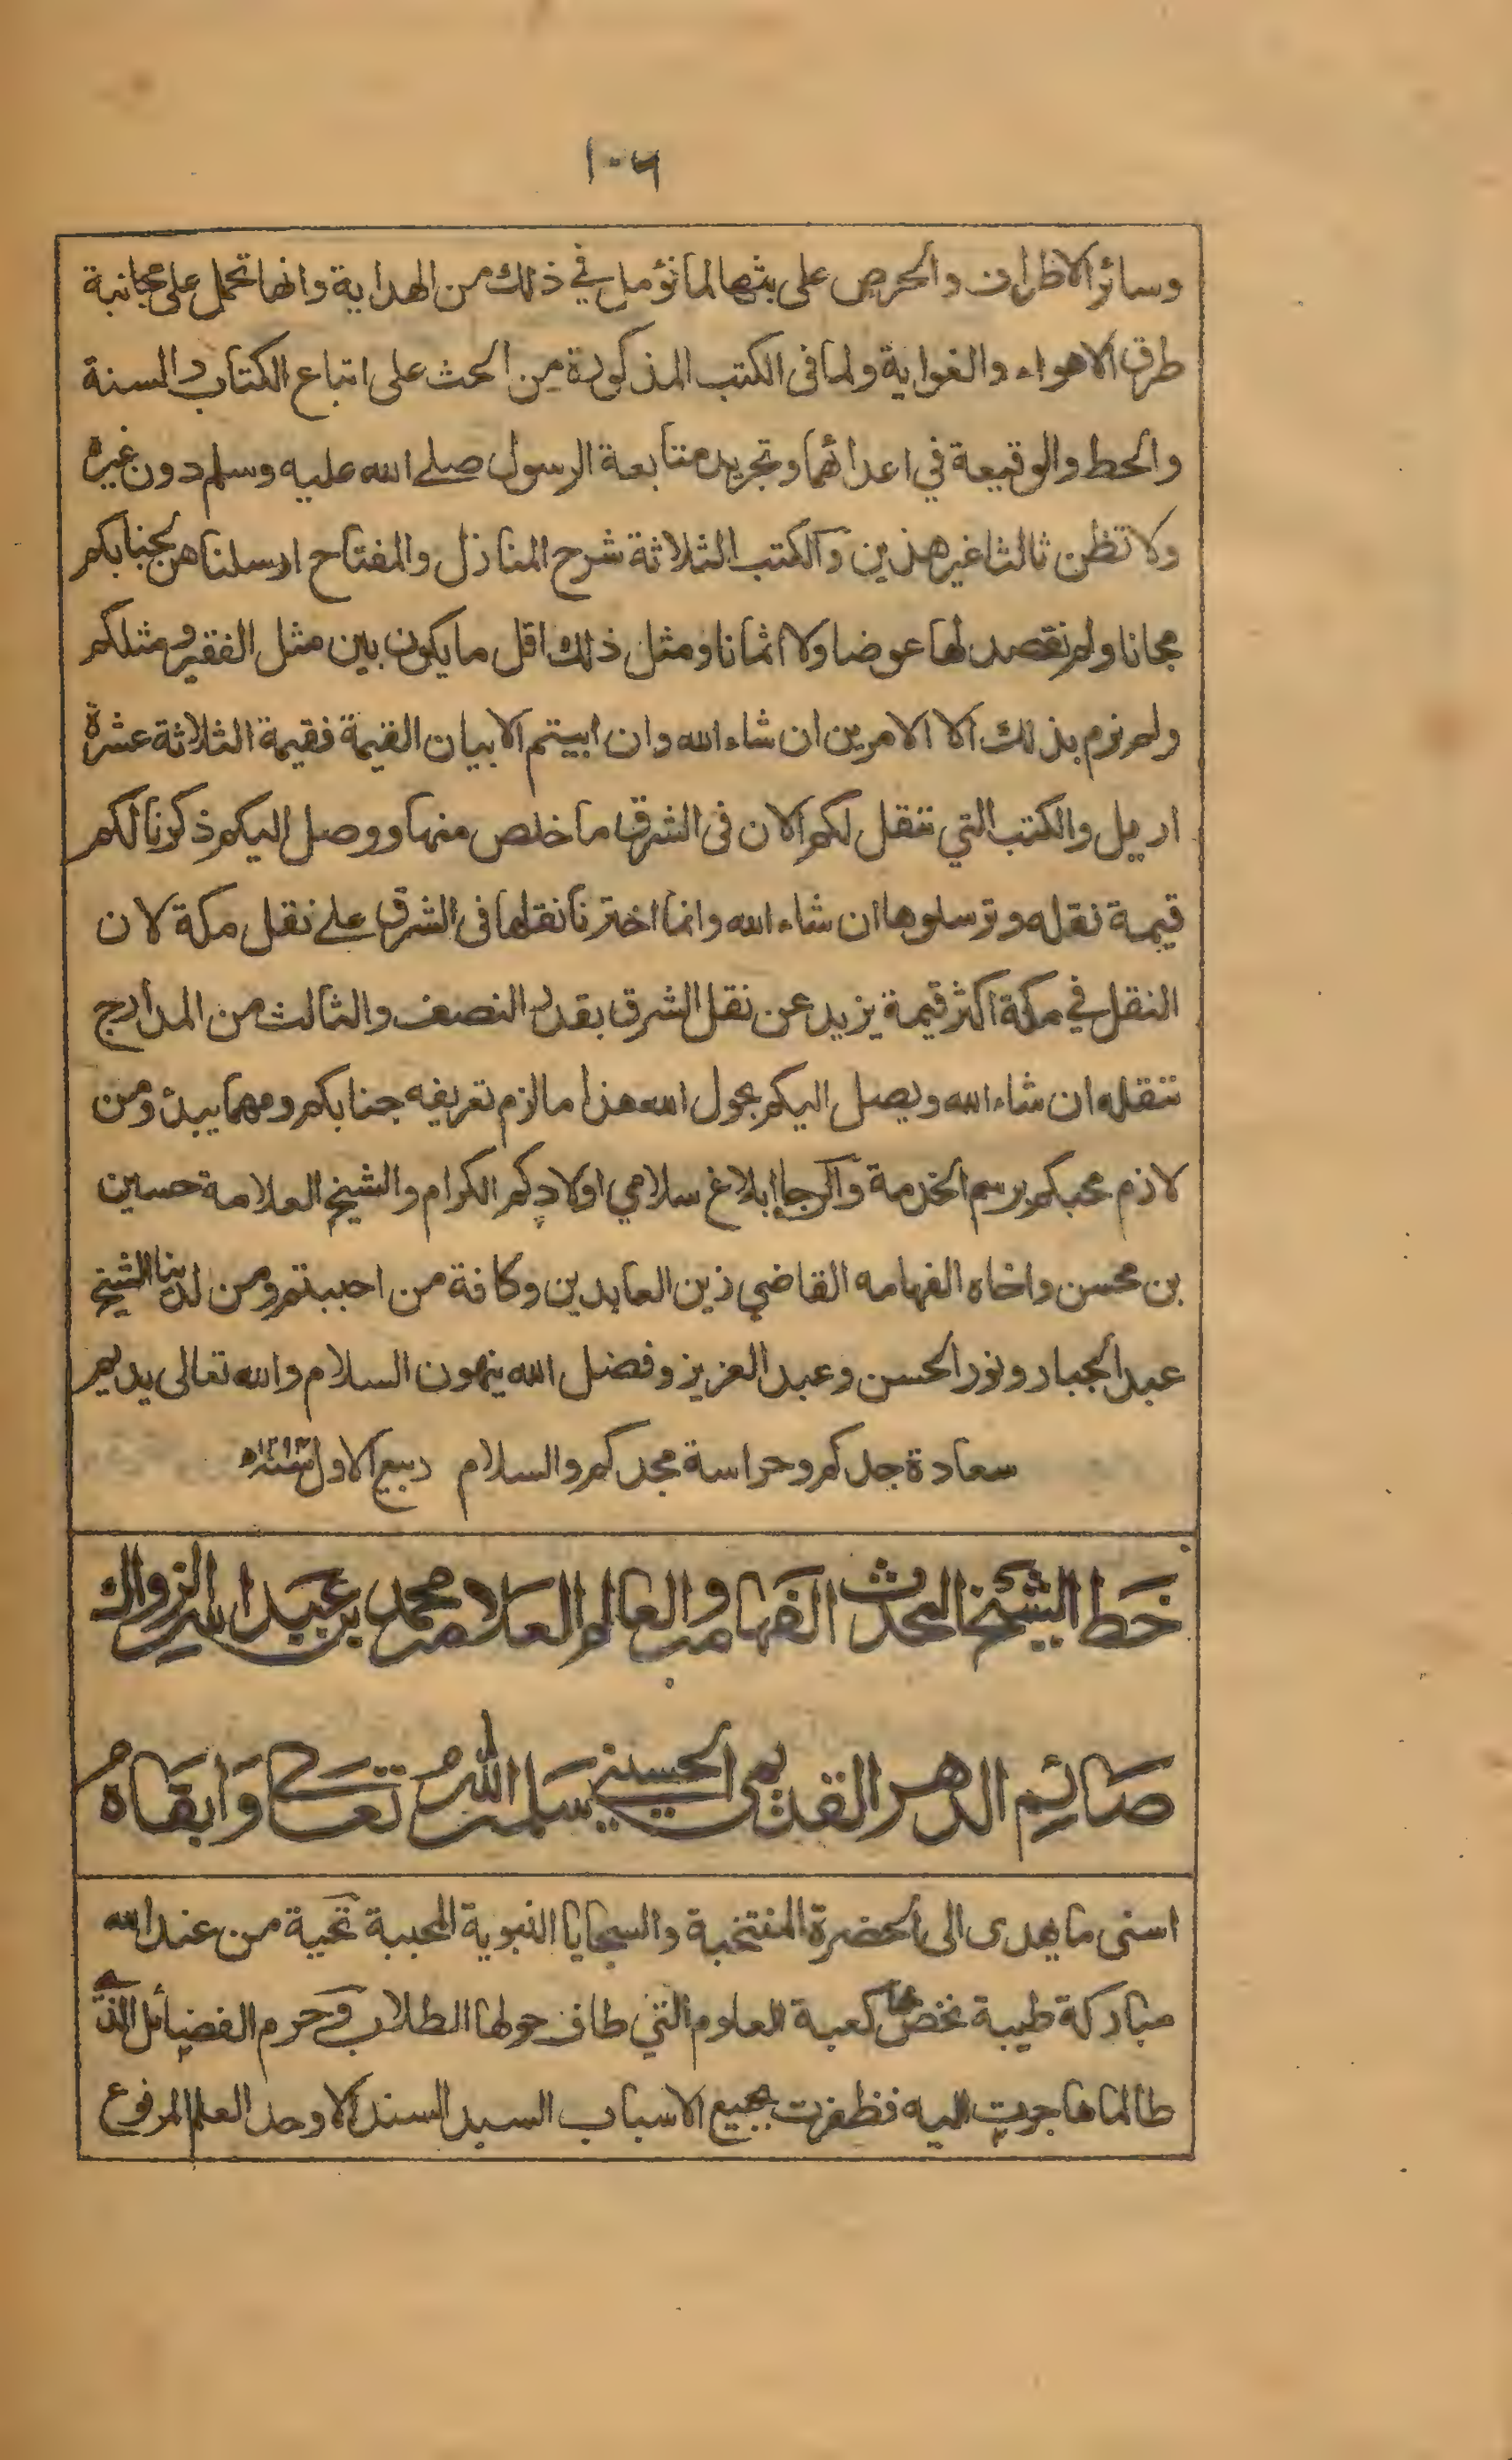 ١٠٦
وسائر الاطراف والحرص على بثها لما نؤمل في ذلك من الهداية وانها تحمل على مجانبة
طرق الاهواء والغواية ولما فى الكتب المذكورة من الحث على اتباع الكتاب والسنة
والحط والوقيعة في اعدائهما وتجريد متابعة الرسول صلے الله عليه وسلم دون غيره
ولا تظن ثالثا غير هذين والكتب الثلاثة شرح المنازل والمفتاح ارسلناهن لجنابكم
مجانا ولم نقصد لها عوضا ولا اثمانا ومثل ذلك اقل ما يكون بين مثل الفقير ومثلكم
ولم نرم بذلك الا الامرين ان شاء الله وان ابيتم الا بيان القيمة فقيمة الثلاثة عشرة
اريل والكتب التي تنقل لكم الان فى الشرق ما خلص منها ووصل اليكم ذكرنا لكم
قيمة نقله وترسلوها ان شاء الله وانما اخترنا نقلها فى الشرق علے نقل مكة لان
النقل في مكة اكثر قيمة يزيد عن نقل الشرق بقدر النصف والثالث من المدارج
ننقله ان شاء الله ويصل اليكم بحول الله هذا ما لزم تعريفه جنابكم ومهما يبدئ ومن
لازم محبكم برسم الخدمة والرجا ابلاغ سلامي اولادكم الكرام والشيخ العلامة حسين
بن محسن واخاه الفهامه القاضي زين العابدين وكافة من احببتم ومن لدينا الشيخ
عبد الجبار ونور الحسن وعبد العزيز وفضل الله ينهون السلام والله تعالى يديم
سعادة جدكم وحراسة مجدكم والسلام ربيع الاول
خط الشيخ المحدث الفهامة والعالم العلامة محمد بن عبد الله الزواك
صائم الدهر القديمي الحسيني سلمه الله تعالى وابقاه
اسنى ما يهدى الى الحضرة المنتخبة والسجايا النبوية المحببة تحية من عند الله
مباركة طيبة نخص بها كعبة العلوم التي طاف حولها الطلاب وحرم الفضائل الذي
طالما هاجرت اليه فظفرت بجميع الاسباب السيد السند الاوحد العلم المرفوع